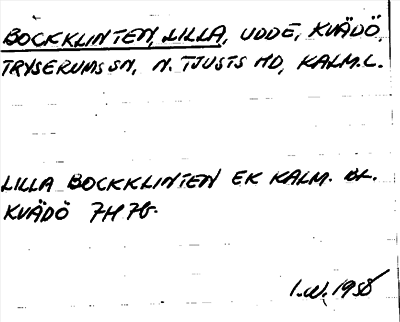 BOCKKLINTEN, LILLA, UDDE, KVÄDÖ,
TRYSERUMS SN, N. TJUSTS HD, KALM. L.
LILLA BOCKKLINTEN EK KALM. BL.
KVÄDÖ 7H7G.
I.W. 1958